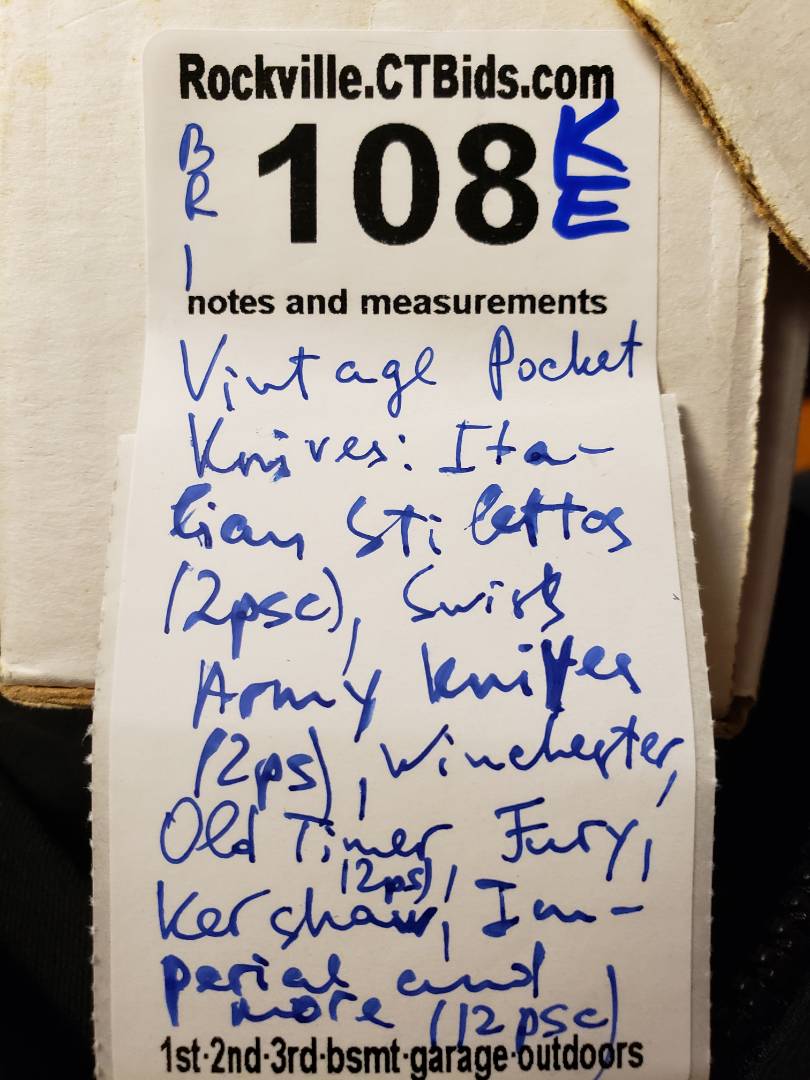 Rockville.CTBids.com
BRI
108
KE
notes and measurements
Vintage Pocket
Knives: Ita-
lian Stilettos
(2psc), Swiss
Army Knives
(2ps), Winchester,
Old Timer, Fury,
(2ps)
Kershaw, Im-
perial and
more (12psc)
1st·2nd·3rd·bsmt·garage·outdoors